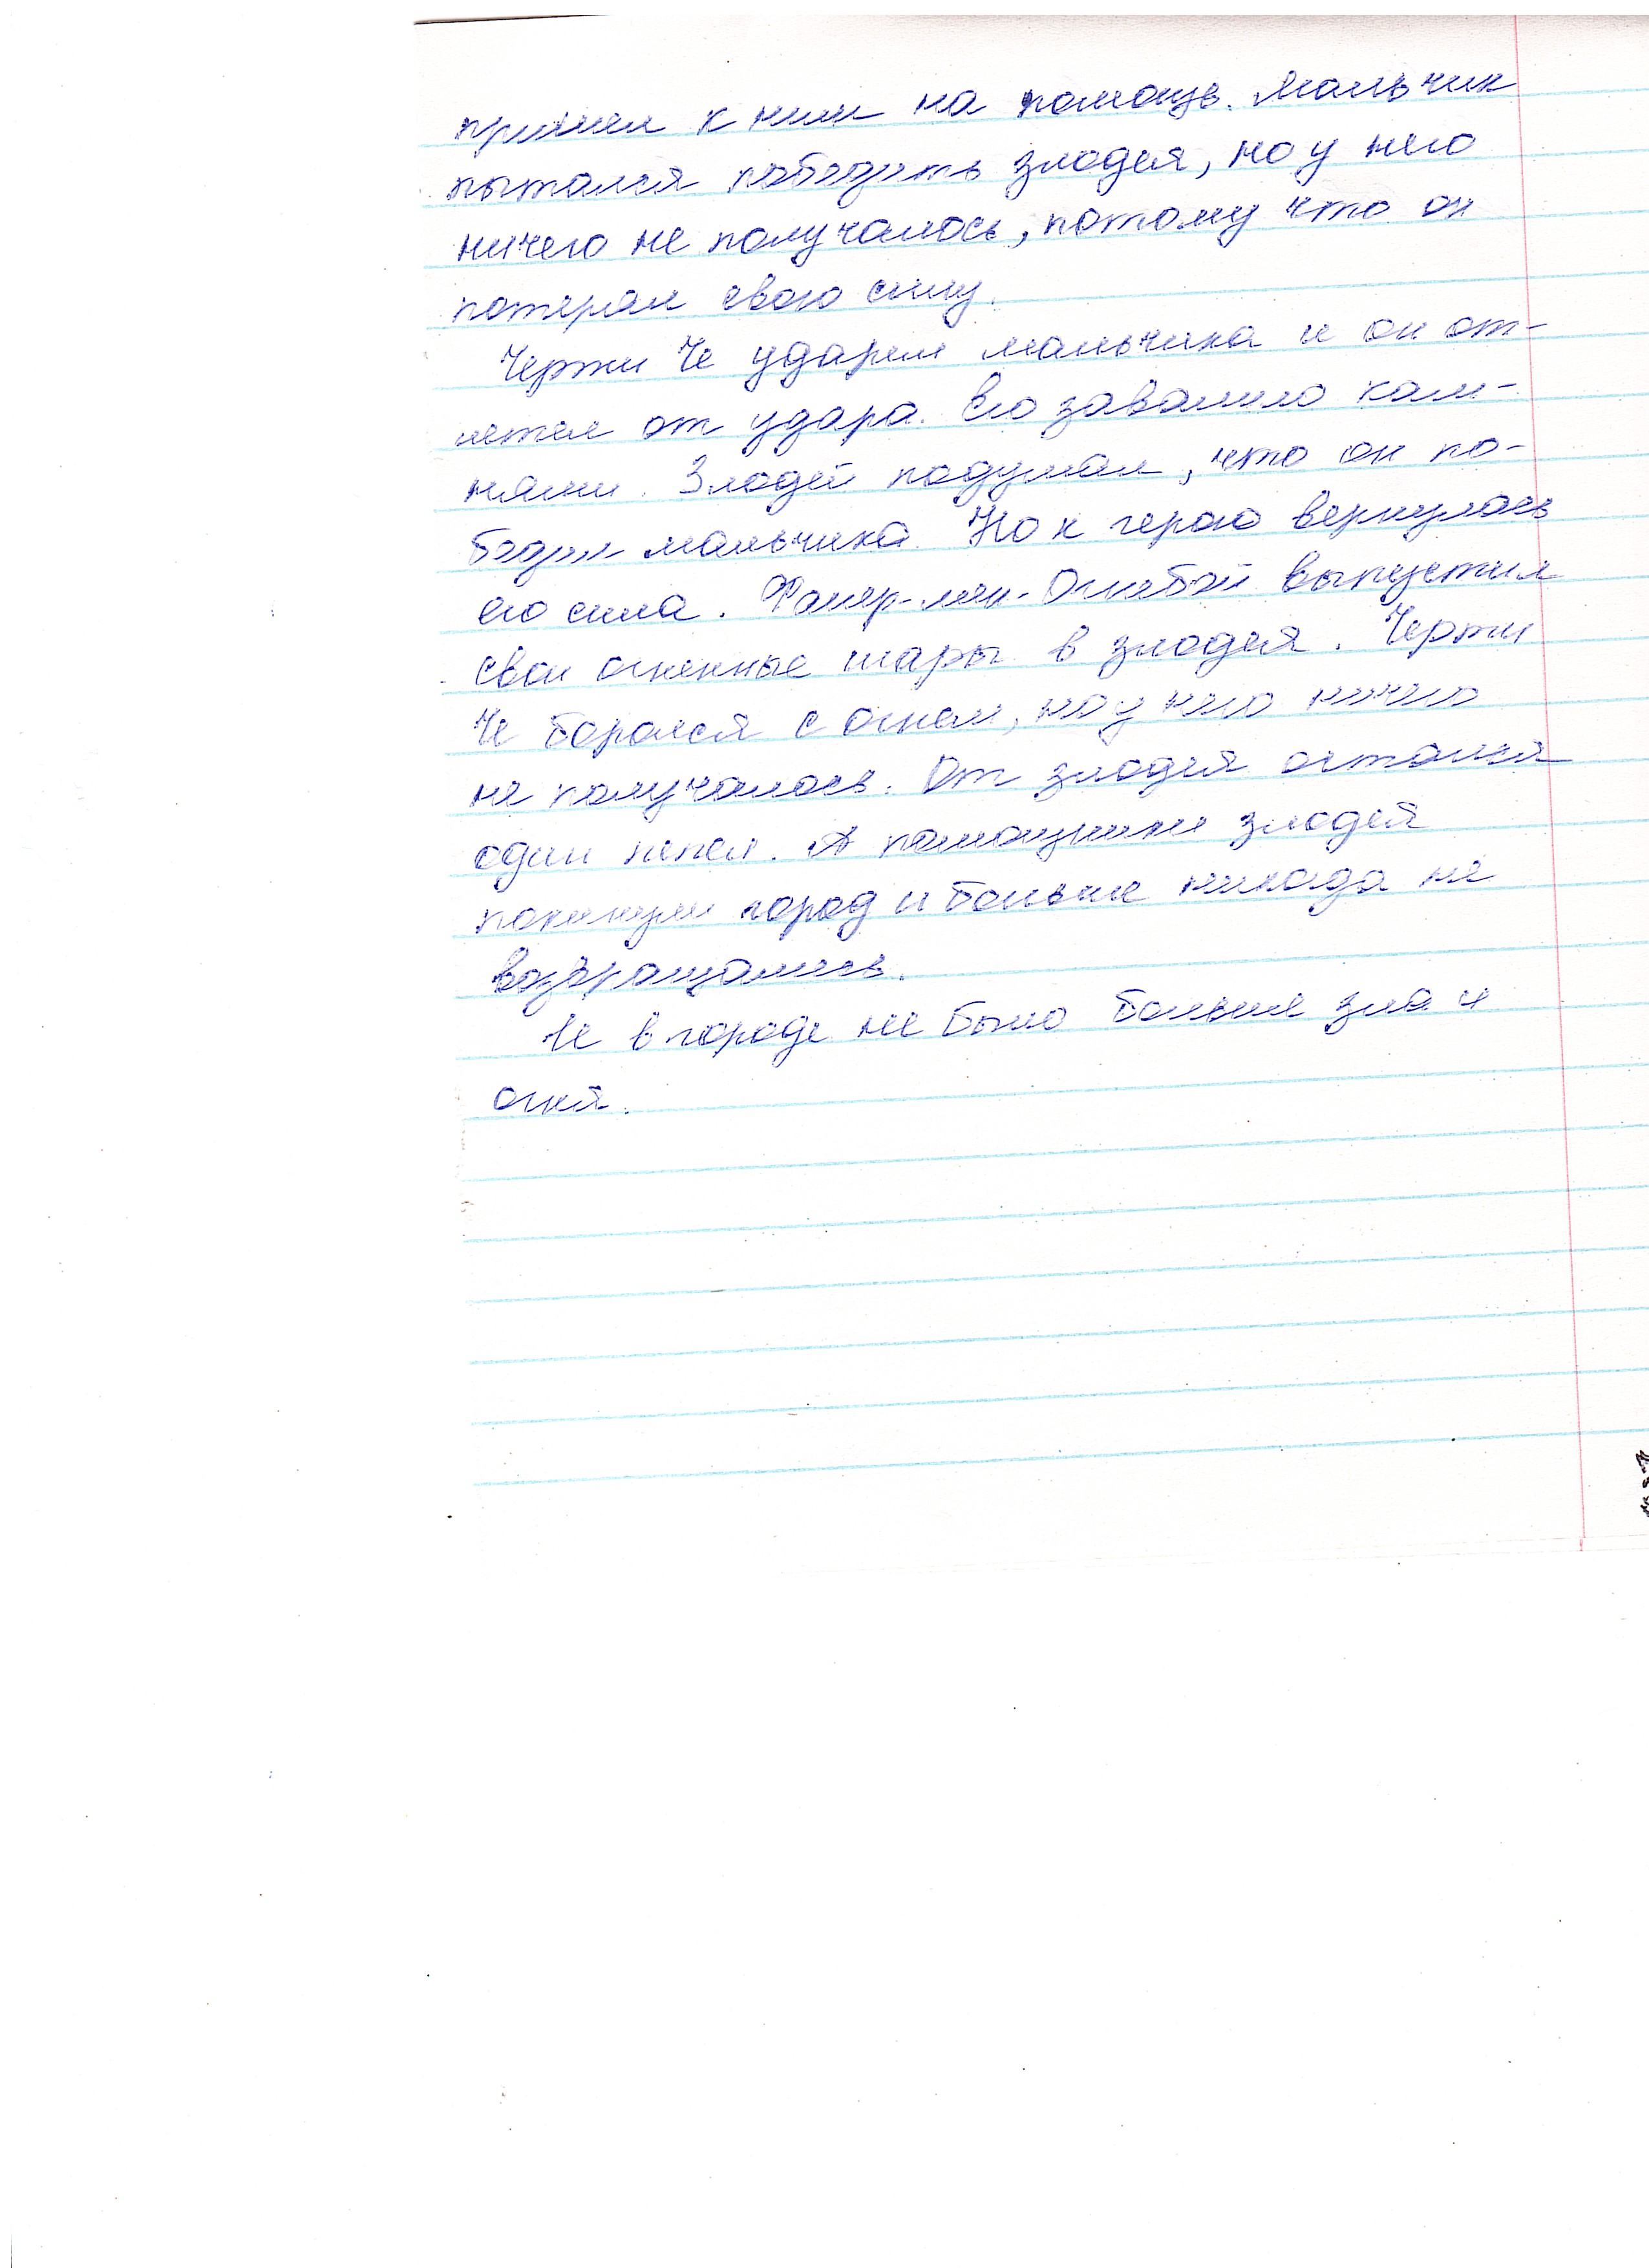 пришел к ним на помощь. Мальчик
пытался победить злодея, но у него
ничего не получалось, потому что он
потерял свою силу.
Черти Че ударил мальчика и он от-
летел от удара. Его завалило кам-
нями. Злодей подумал, что он по-
бедил мальчика. Но к герою вернулась
его сила. Фаер-мен-Огнебой выпустил
свои огненные шары в злодея. Черти
Че боролся с огнем, но у него ничего
не получалось. От злодея остался
один пепел. А помощники злодея
покинули город и больше никогда не
возвращались.
И в городе не было больше зла и
огня.